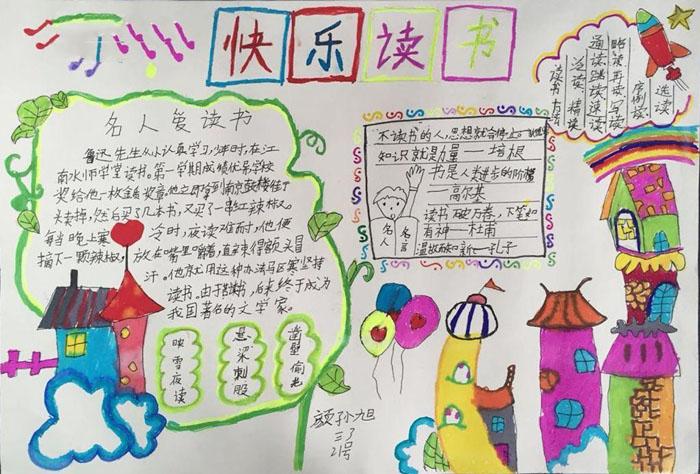 快乐读书
名人爱读书
鲁迅先生从小认真学习。少年时,在江
南水师学堂读书。第一学期成绩优异学校
奖给他一枚金质奖章。他立即拿到南京鼓楼街
头卖掉,然后买了几本书,又买了一串红辣椒。
每当晚上寒冷时,夜读难耐,他便
摘下一颗辣椒,放在嘴里嚼着,直辣得额头冒
汗。他就用这种办法驱寒坚持
读书。由于苦读书,后来终于成为
我国著名的文学家。
映雪夜读
悬梁刺股
凿壁偷光
不读书的人,思想就会停止。
知识就是力量——培根
书是人类进步的阶梯
——高尔基
读书破万卷,下笔如
有神——杜甫
温故而知新——孔子
名人
名言
选读
序例读
略读再读写读
通读跳读速读
泛读精读
读书方法
颜孙旭
三3
21号